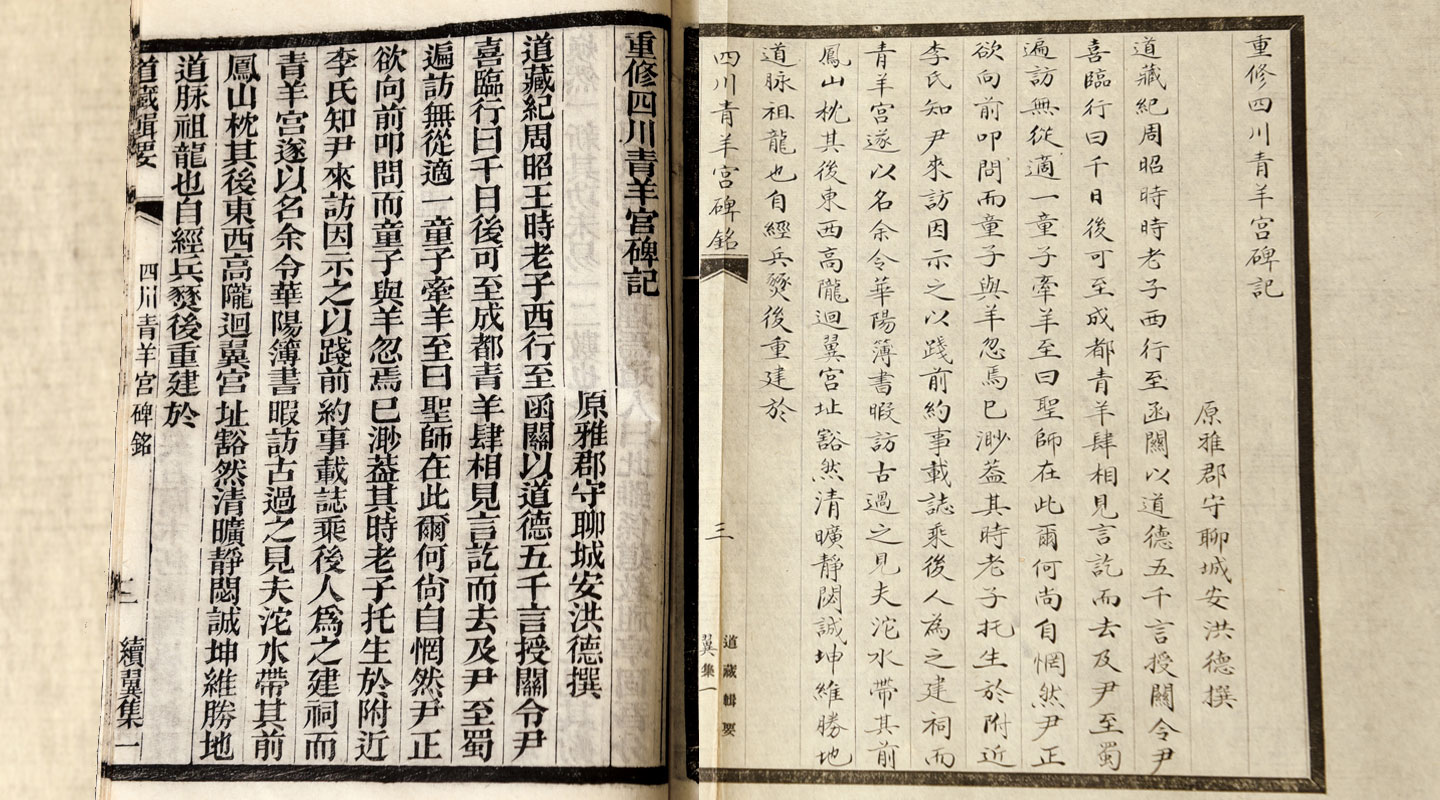 重修四川青羊宮碑記
原雅郡守聊城安洪德撰
道藏紀周昭時時老子西行至函關以道德五千言授關令尹
喜臨行曰千日後可至成都青羊肆相見言訖而去及尹至蜀
遍訪無從適一童子牽羊至曰聖師在此爾何尚自惘然尹正
欲向前叩問而童子與羊忽焉已渺蓋其時老子托生於附近
李氏知尹來訪因示之以踐前約事載誌乘後人為之建祠而
青羊宮遂以名余令華陽簿書暇訪古過之見夫沱水帶其前
鳳山枕其後東西高隴迴翼宮址豁然清曠靜閟誠坤維勝地
道脉祖龍也自經兵燹後重建於
四川青羊宮碑銘
三
道藏輯要
翼集一
重修四川青羊宮碑記
原雅郡守聊城安洪德撰
道藏紀周昭王時老子西行至函關以道德五千言授關令尹
喜臨行曰千日後可至成都青羊肆相見言訖而去及尹至蜀
遍訪無從適一童子牽羊至曰聖師在此爾何尙自惘然尹正
欲向前叩問而童子與羊忽焉已渺蓋其時老子托生於附近
李氏知尹來訪因示之以踐前約事載誌乘後人爲之建祠而
青羊宮遂以名余令華陽簿書暇訪古過之見夫沱水帶其前
鳳山枕其後東西高隴迴翼宮址豁然清曠靜閟誠坤維勝地
道脉祖龍也自經兵燹後重建於
道藏輯要
四川青羊宮碑銘
續翼集一